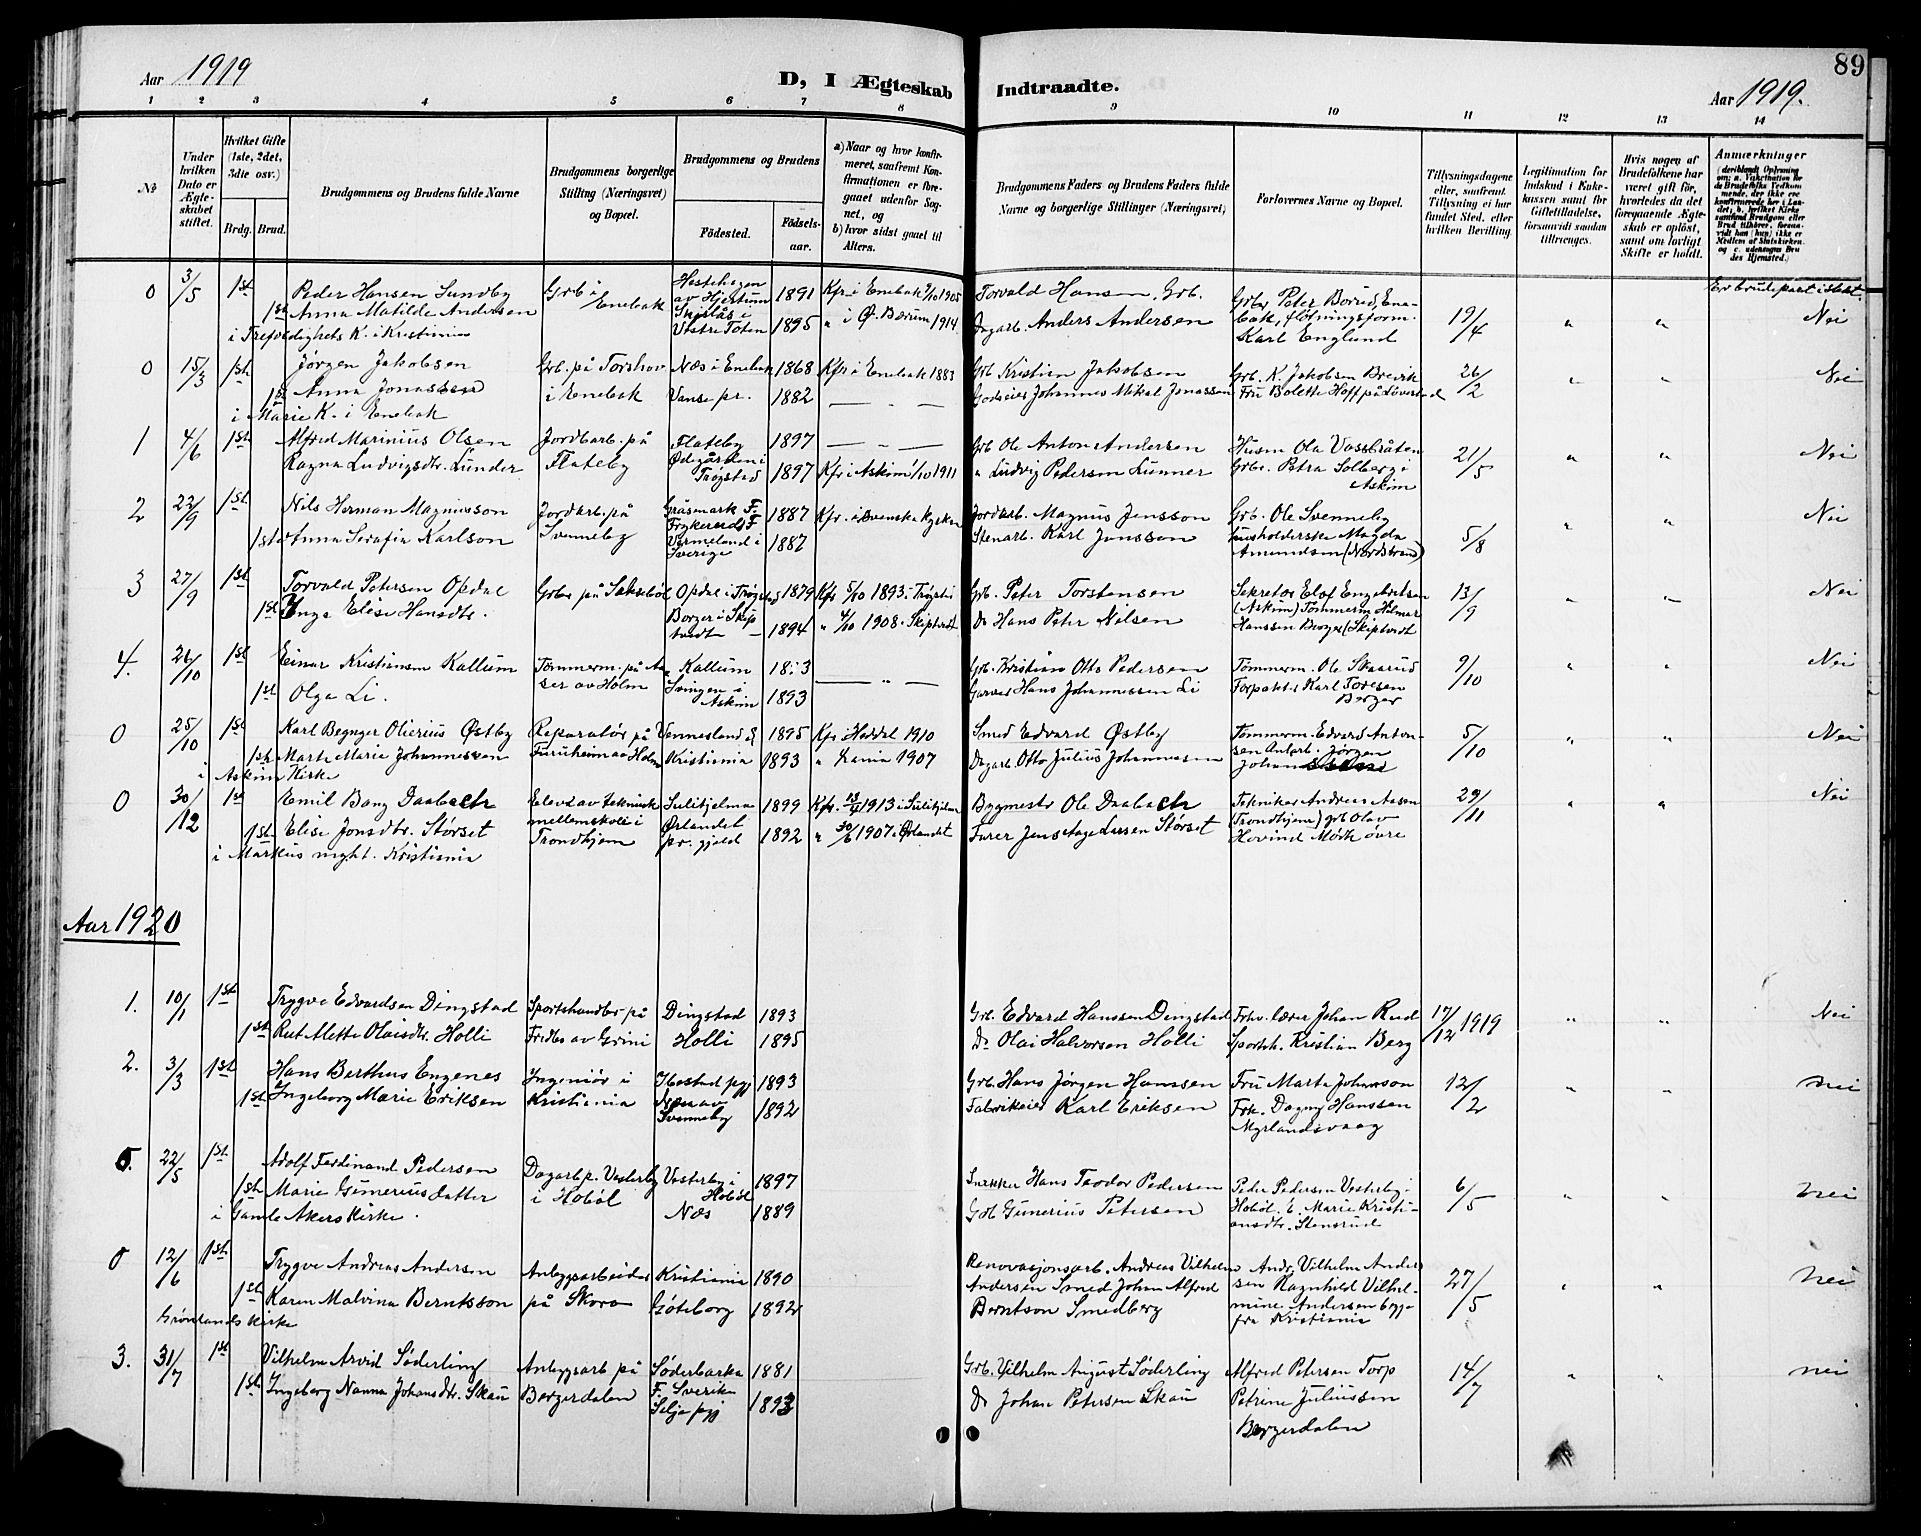 89
Aar 1919
D, I Ægteskab Indtraadte.
Aar 1919.
1 2 3 4 5 6 7 8 9 10 11 12 13 14
No
Under hvilken Dato er Ægteskabet stiftet.
Hvilket Gifte (1ste, 2det, 3die osv.)
Brdg. Brud.
Brudgommens og Brudens fulde Navne
Brudgommens borgerlige Stilling (Næringsvei) og Bopæl.
Brudgommens og Brudens
Fødested.
Fødselsaar.
a) Naar og hvor konfirmeret, saafremt Konfirmationen er foregaaet udenfor Sognet, og
b) hvor sidst gaaet til Alters.
Brudgommens Faders og Brudens Faders fulde Navne og borgerlige Stillinger (Næringsvei)
Forlovernes Navne og Bopæl.
Tillysningsdagene eller, saafremt Tillysning ei har fundet Sted, efter hvilken Bevilling
Legitimation for Indskud i Enkekassen samt for Giftetilladelse, forsaavidt saadan tiltrænges.
Hvis nogen af Brudefolkene har været gift før, hvorledes da det foregaaende Ægteskab er opløst, samt om lovligt Skifte er holdt.
Anmærkninger
Er brudepart i slekt.
0 3/5 1st Peder Hansen Sundby Grb i Enebak Hestehagen av Hjestum 1891 Kfr i Enebak 2/10 1905 Torvald Hansen, Grb. Grbr Peter Borud, Enebak, fløtningsform. Karl Englund 19/4 " " Nei
1st Anna Matilde Andersen Vestre Toten 1895 " i Ø. Bærum 1914 Dagarb. Anders Andersen
i Trefoldighets K. i Kristiania
0 15/3 1st Jørgen Jakobsen Grb. på Torshov i Enebak Næs i Enebak 1868 Kfr i Enebak 1883 Grb Kristian Jakobsen Grb. K Jakobsen Brevik 26/2 " " Nei
1st Anna Jonassen Vanse pr. 1882 — " — Godseier Johannes Mikal Jonassen Fru Bolette Hoff på Løverstad
i Marie K. i Enebak
1 4/6 1st Alfred Marinius Olsen Jordbarb. på Flateby Flateby 1897 — " — Grb Ole Anton Andersen Husm Ola Vasshråten 21/5 " " Nei
Ragna Ludvigsdtr. Lunder Ødegården i Trøgstad 1897 Kfr i Askim 1/10 1911 " Ludvig Pedersen Lunner Grbr. Petra Solberg i Askim
2 22/9 1st Nils Herman Magnusson Jordarb. på Svenneby Gräsmark F. 1887 Kfr. i Svenska Kyrkan Jordarb. Magnus Jensson Grb. Ole Svenneby 5/8 " " Nei
1st Anna Serafia Karlson Frykerud F Vermeland i Sverige 1887 Stenarb. Karl Jonsson husholderske Magda Amundsen (Nordstrand)
3 27/9 1st Torvald Petersen Opdal Grbr på Saksebøl Opdal i Trøgstad 1879 Kfr 5/10 1893 i Trøgst. Grb. Peter Torstensen Sekretær Elof Engebretsen 13/9 " " Nei
1st Inga Elise Hansdtr. Borger i Skiptvedt 1894 " 4/10 1908 i Skiptvedt Do Hans Peter Nilsen (Askim) Tømmerm Hilmar Hanssen Berger (Skiptvedt
4. 26/10 1st Einar Kristiansen Kallum Tømmerm. på Aaser av Holm Kallum — " — Grb. Kristian Otto Pedersen Tømmerm. Ole Skaarud 9/10 " " Nei
1st Olga Li. Svingen i Askim 1893 Garver Hans Johannessen Li Forpakter Karl Toresen Berger
0 25/10 1st Karl Begnger Olierius Østby Reparatør på Furuheim av Holm Vennesland S. 1895 Kfr Heddal 1910 Smed Edvard Østby Tømmerm. Edvard Antonsen 5/10 " " Nei
1st Marta Marie Johannessen Kristiania 1893 " Krania 1907 Dagarb. Otto Julius Johannessen Jørgen
i Askim Kirke
0 30/12 1st Emil Bang Daabach Elev av teknisk mellemskole i Trondhjem Sulitjelma 1899 Kfr. 1913 i Sulitjelma Bygmestr Ole Daabach Tekniker Andreas Aasen 29/11 " " Nei
1st Elise Jonsdtr. Størset Ørlandet pr. gjeld 1892 " 30/6 1907 i Ørlandet Furer Jens Aage Larsen Størset (Trondhjem) grb Olav Hovind Mørk øvre
i Markus might. Kristiania
Aar 1920
1. 10/1 1st Trygve Edvardsen Dingstad Sportshandler på Fredbo av Grini Dingstad 1893 Grb. Edvard Hanssen Dingstad Frhv. lærer Johan Rud 17/12 1919 " " Nei
1st Rut Mette Olaisdtr. Holli Holli 1895 Do Olai Halvorsen Holli Sportsh. Kristian Berg
2. 3/3 1st Hans Berthus Engenes Ingeniør i Kristiania Ibestad pgj 1893 Grb. Hans Jørgen Hanssen Fru Marta Johanson 12/2 " " nei
1st Ingeborg Marie Eriksen Næs av Svenneby 1892 Fabrikeier Karl Eriksen Frk. Dagny Hanssen Myrlandsvaag
0. 22/5 1st Adolf Ferdinand Pedersen Dagarb p. Vesterby i Hobøl Vesterby i Hobøl 1897 Snekker Hans Teodor Pedersen Peder Pedersen Vesterby i 6/5 " " nei
1st Marie Gunerius datter Næs 1889 Grb Gunerius Petersen Hobøl. E. Marie Kristiansdtr. Stensrud
i Gamle Akers Kirke.
0 12/6 1st Trygve Andreas Andersen Anlegsarbeider på Skovo Kristiania 1890 Renovasjonsarb. Andreas Vilhelm Andersen Andr. Vilhelm Andersen 27/5 " " nei
1st Karen Malvina Berntsson Göteborg 1892 Smed Johan Alfred Berntson Smedberg Ragnhild Vilhelmine Andersen begge fra Kristiania
Grønlands Kirke
3. 31/7 1st Vilhelm Arvid Söderling Anlegsarb på Bergerdalen Söderbarka F. Sverike 1881 Grb. Vilhelm August Söderling Alfred Petersen Torp 14/7 " " nei
1st Ingeborg Nanna Johansdtr. Skau Selje pgj 1893 Do Johan Petersen Skau Petrine Juliussen Bergerdalen